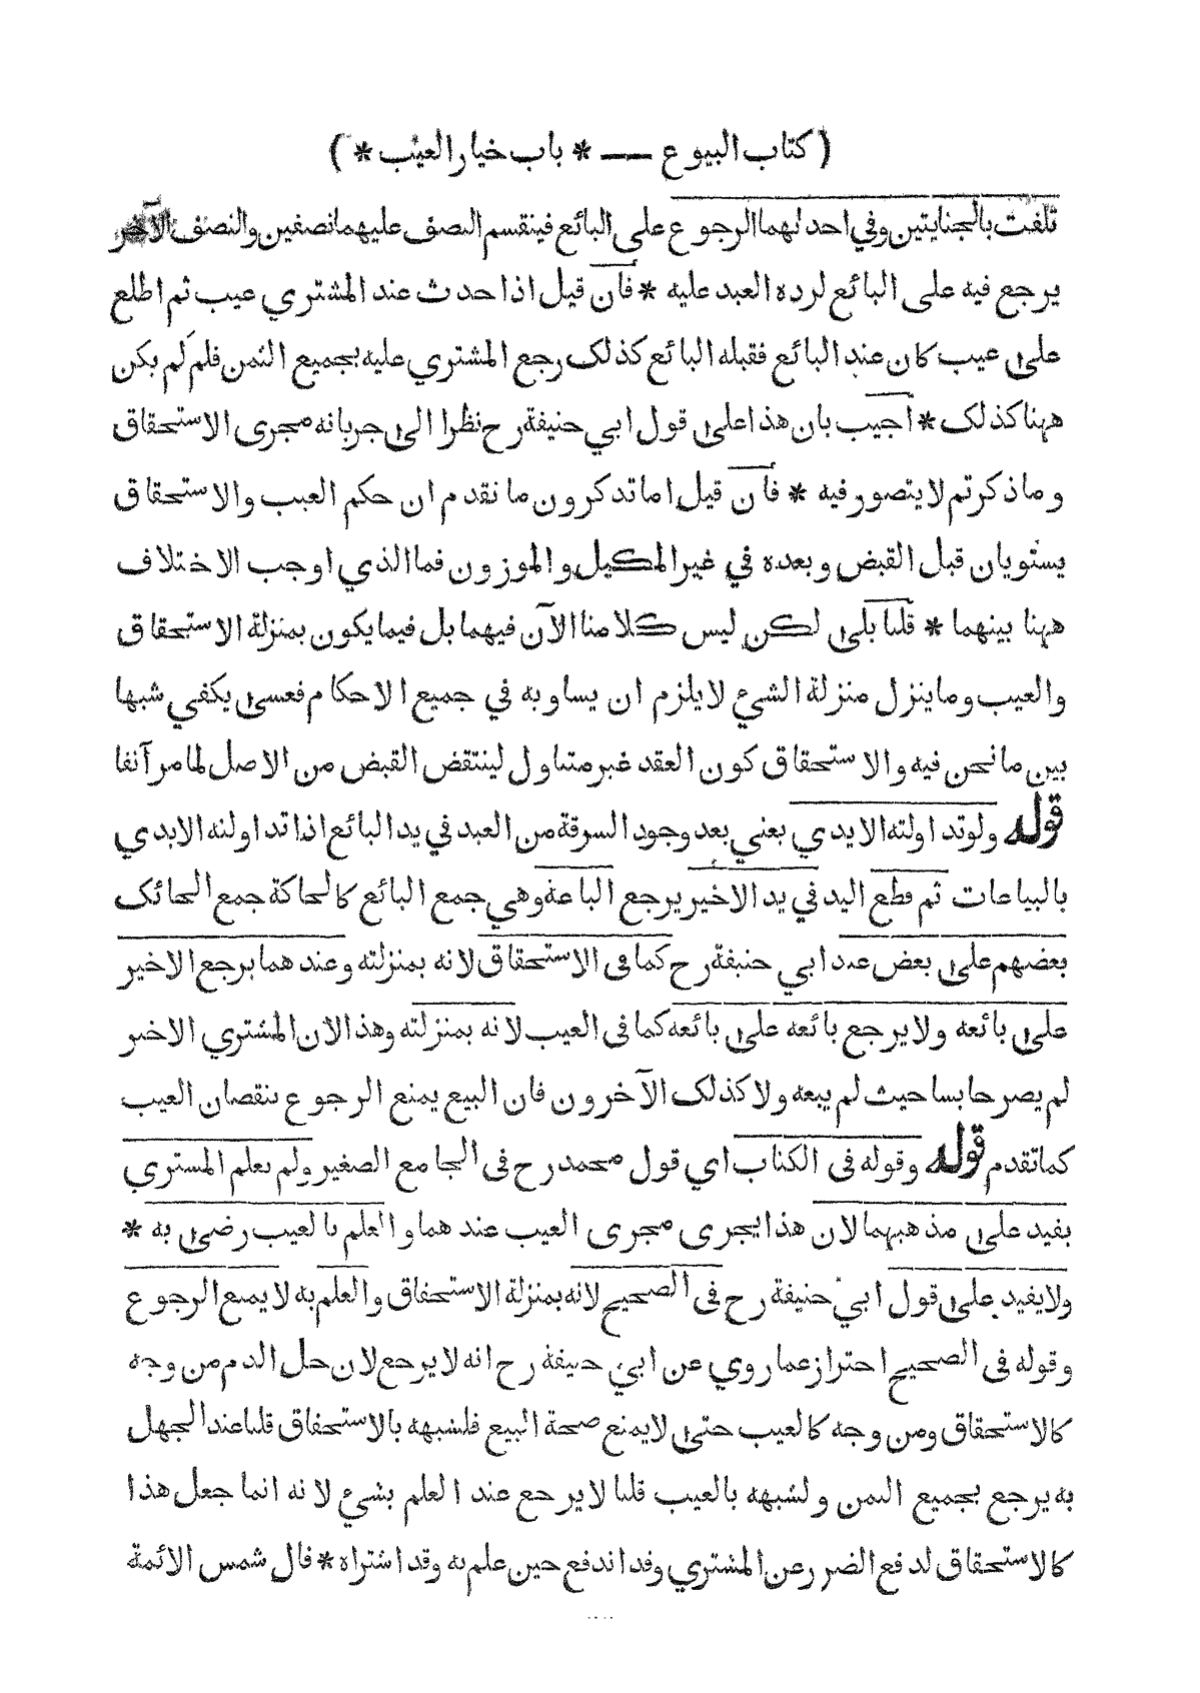 ( كتاب البيوع — * باب خيار العيب * )
تلفت بالجنايتين وفي احدلهما الرجوع على البائع فينقسم النصف عليهما نصفين والنصف الآخر
يرجع فيه على البائع لرده العبد عليه * فأن قيل اذا حدث عند المشتري عيب ثم اطلع
على عيب كان عند البائع فقبله البائع كذلك رجع المشتري عليه بجميع الثمن فلم لم يكن
ههنا كذلك * اجيب بان هذا على قول ابي حنيفة رح نظرا الى جريانه مجرى الاستحقاق
وما ذكرتم لا يتصور فيه * فأن قيل اما تذكرون ما تقدم ان حكم العيب والاستحقاق
يستويان قبل القبض وبعده في غير المكيل والموزون فما الذي اوجب الاختلاف
ههنا بينهما * قلنا بلى لكن ليس كلامنا الآن فيهما بل فيما يكون بمنزلة الاستحقاق
والعيب وما ينزل منزلة الشيء لا يلزم ان يساويه في جميع الاحكام فعسى يكفي شبها
بين ما نحن فيه والاستحقاق كون العقد غير متناول لينتقض القبض من الاصل لما مر آنفا
قوله ولو تداولته الايدي يعني بعد وجود السرقة من العبد في يد البائع اذا تداولته الايدي
بالبياعات ثم قطع اليد في يد الاخير يرجع الباعة وهي جمع البائع كالحاكة جمع الحائك
بعضهم على بعض عند ابي حنيفة رح كما في الاستحقاق لانه بمنزلته وعندهما يرجع الاخير
على بائعه ولا يرجع بائعه على بائعه كما في العيب لانه بمنزلته وهذا الان المشتري الاخير
لم يصر حابسا حيث لم يبعه ولا كذلك الآخرون فان البيع يمنع الرجوع بنقصان العيب
كما تقدم قوله وقوله في الكتاب اي قول محمد رح في الجامع الصغير ولم يعلم المشتري
يفيد على مذهبهما لان هذا يجرى مجرى العيب عندهما والعلم بالعيب رضى به *
ولا يفيد على قول ابي حنيفة رح في الصحيح لانه بمنزلة الاستحقاق والعلم به لا يمنع الرجوع
وقوله في الصحيح احتراز عما روي عن ابي حنيفة رح انه لا يرجع لان حل الدم من وجه
كالاستحقاق ومن وجه كالعيب حتى لا يمنع صحة البيع فلشبهه بالاستحقاق قلنا عند الجهل
به يرجع بجميع الثمن ولشبهه بالعيب قلنا لا يرجع عند العلم بشيء لانه انما جعل هذا
كالاستحقاق لدفع الضرر عن المشتري وقد اندفع حين علم به وقد اشتراه * قال شمس الائمة